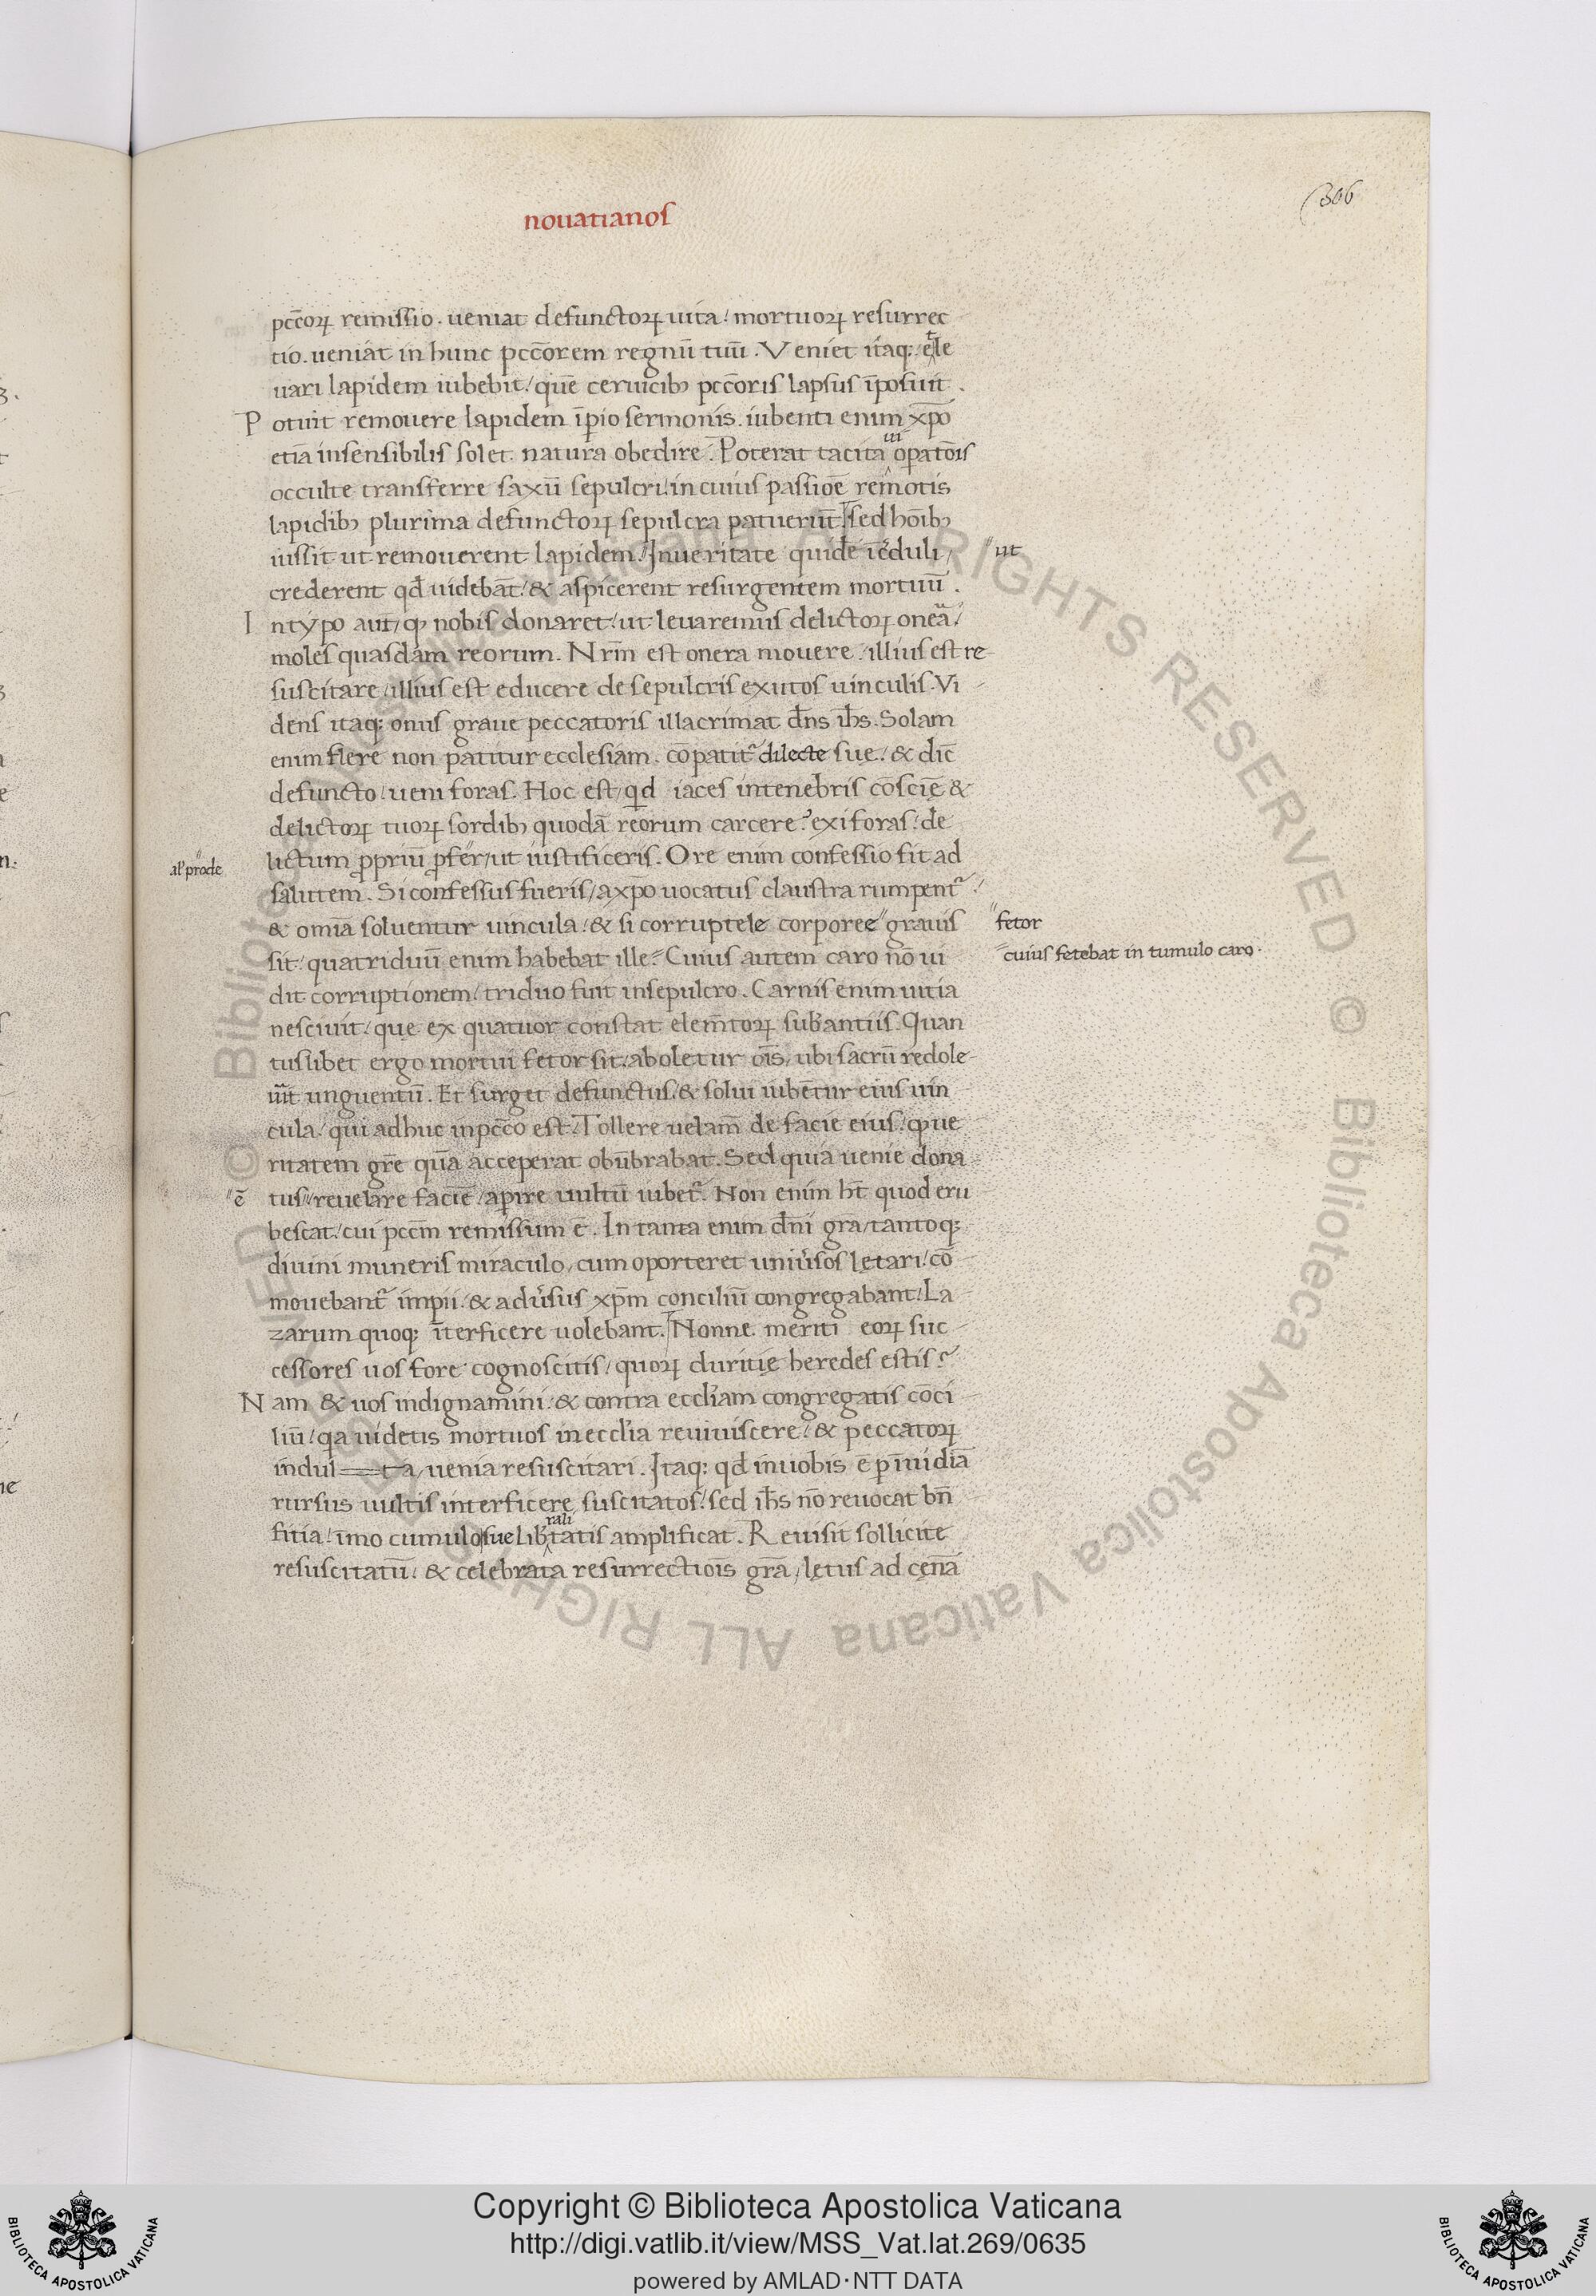 (306
nouatianos
pcc̄oꝝ remissio . ueniat defunctoꝝ uita / mortuoꝝ resurrec
tio . ueniat in hunc pccōrem regnū tuū . Veniet itaq; ele
uari lapidem iubebit / quē ceruicibꝫ pccōris lapsus īposuit .
Potuit remouere lapidem īpio sermonis . iubenti enim xp̄o
etiā insensibilis solet natura obedire . Poterat tacita ui opatōis
occulte transferre saxū sepulcri / in cuius passiōe remotis
lapidibꝫ plurima defunctoꝝ sepulcra patuerūt . sed hoībꝫ
iussit ut remouerent lapidem . In ueritate quidē īcēduli /
"ut
crederent qd̄ uidebāt / & aspicerent resurgentem mortuū .
In typo aut̄ / qꝫ nobis donaret / ut leuaremus delictoꝝ onea /
moles quasdam reorum . Nr̄m est onera mouere / illius est re
suscitare / illius est educere de sepulcris exutos uinculis . Vi
dens itaq; onus graue peccatoris illacrimat dn̄s ih̄s . Solam
enim flere non patitur ecclesiam . cōpatit᷑ dilecte sue / & dic̄
defuncto / ueni foras . Hoc est / qd iaces in tenebris cōsciē &
delictoꝝ tuoꝝ sordibꝫ quodā reorum carcere ? exi foras / de
al' prode
lictum ꝓpriū ꝓfer / ut iustificeris . Ore enim confessio fit ad
salutem . Si confessus fueris / a xp̄o uocatus claustra rumpent᷑ /
& omīa soluentur uincula / & si corruptele corporee " grauis
"fetor
sit / quatriduū enim habebat ille . Cuius autem caro nō ui
cuius fetebat in tumulo caro .
dit corruptionem / triduo fuit in sepulcro . Carnis enim uitia
nesciuit / que ex quatuor constat elem̄toꝝ sub̄antiis . Quan
tuslibet ergo mortui fetor sit / aboletur oīs / ubi sacrū redole
uīt unguentū . Et surget defunctus / & solui iubētur eius uin
cula / qui adhuc in pcc̄o est / Tollere uelam̄ de facie eius / qꝫ ue
ritatem gr̄e quā acceperat obūbrabat . Sed quia uenie dona
"ē
tus " reuelare faciē / apire uultū iubet᷑ . Non enim h̄t quod eru
bescat / cui pccm̄ remissum ē . In tanta enim dn̄i gr̄a / tantoq;
diuini muneris miraculo / cum oporteret uniu'sos lętari / cō
mouebant᷑ impii / & adu'sus xp̄m conciliū congregabant / La
zarum quoq; īterficere uolebant . Nonne meriti eoꝝ suc
cessores uos fore cognoscitis / quoꝝ duritię heredes estis ?
Nam & uos indignamini / & contra eccl'iam congregatis cōci
liū / qa uidetis mortuos in eccl'ia reuiuiscere / & peccatoꝝ
indul==ta / uenia resuscitari . Itaq; qd̄ in uobis ē p īuidiā
rursus uultis interficere suscitatos / sed ih̄s nō reuocat bn̄
fitia / imo cumulo sue lib'ralitatis amplificat . Reuisit sollicite
resuscitatū / & celebrata resurrectiōis gr̄a / lętus ad cęnā
Copyright © Biblioteca Apostolica Vaticana
http://digi.vatlib.it/view/MSS_Vat.lat.269/0635
powered by AMLAD·NTT DATA